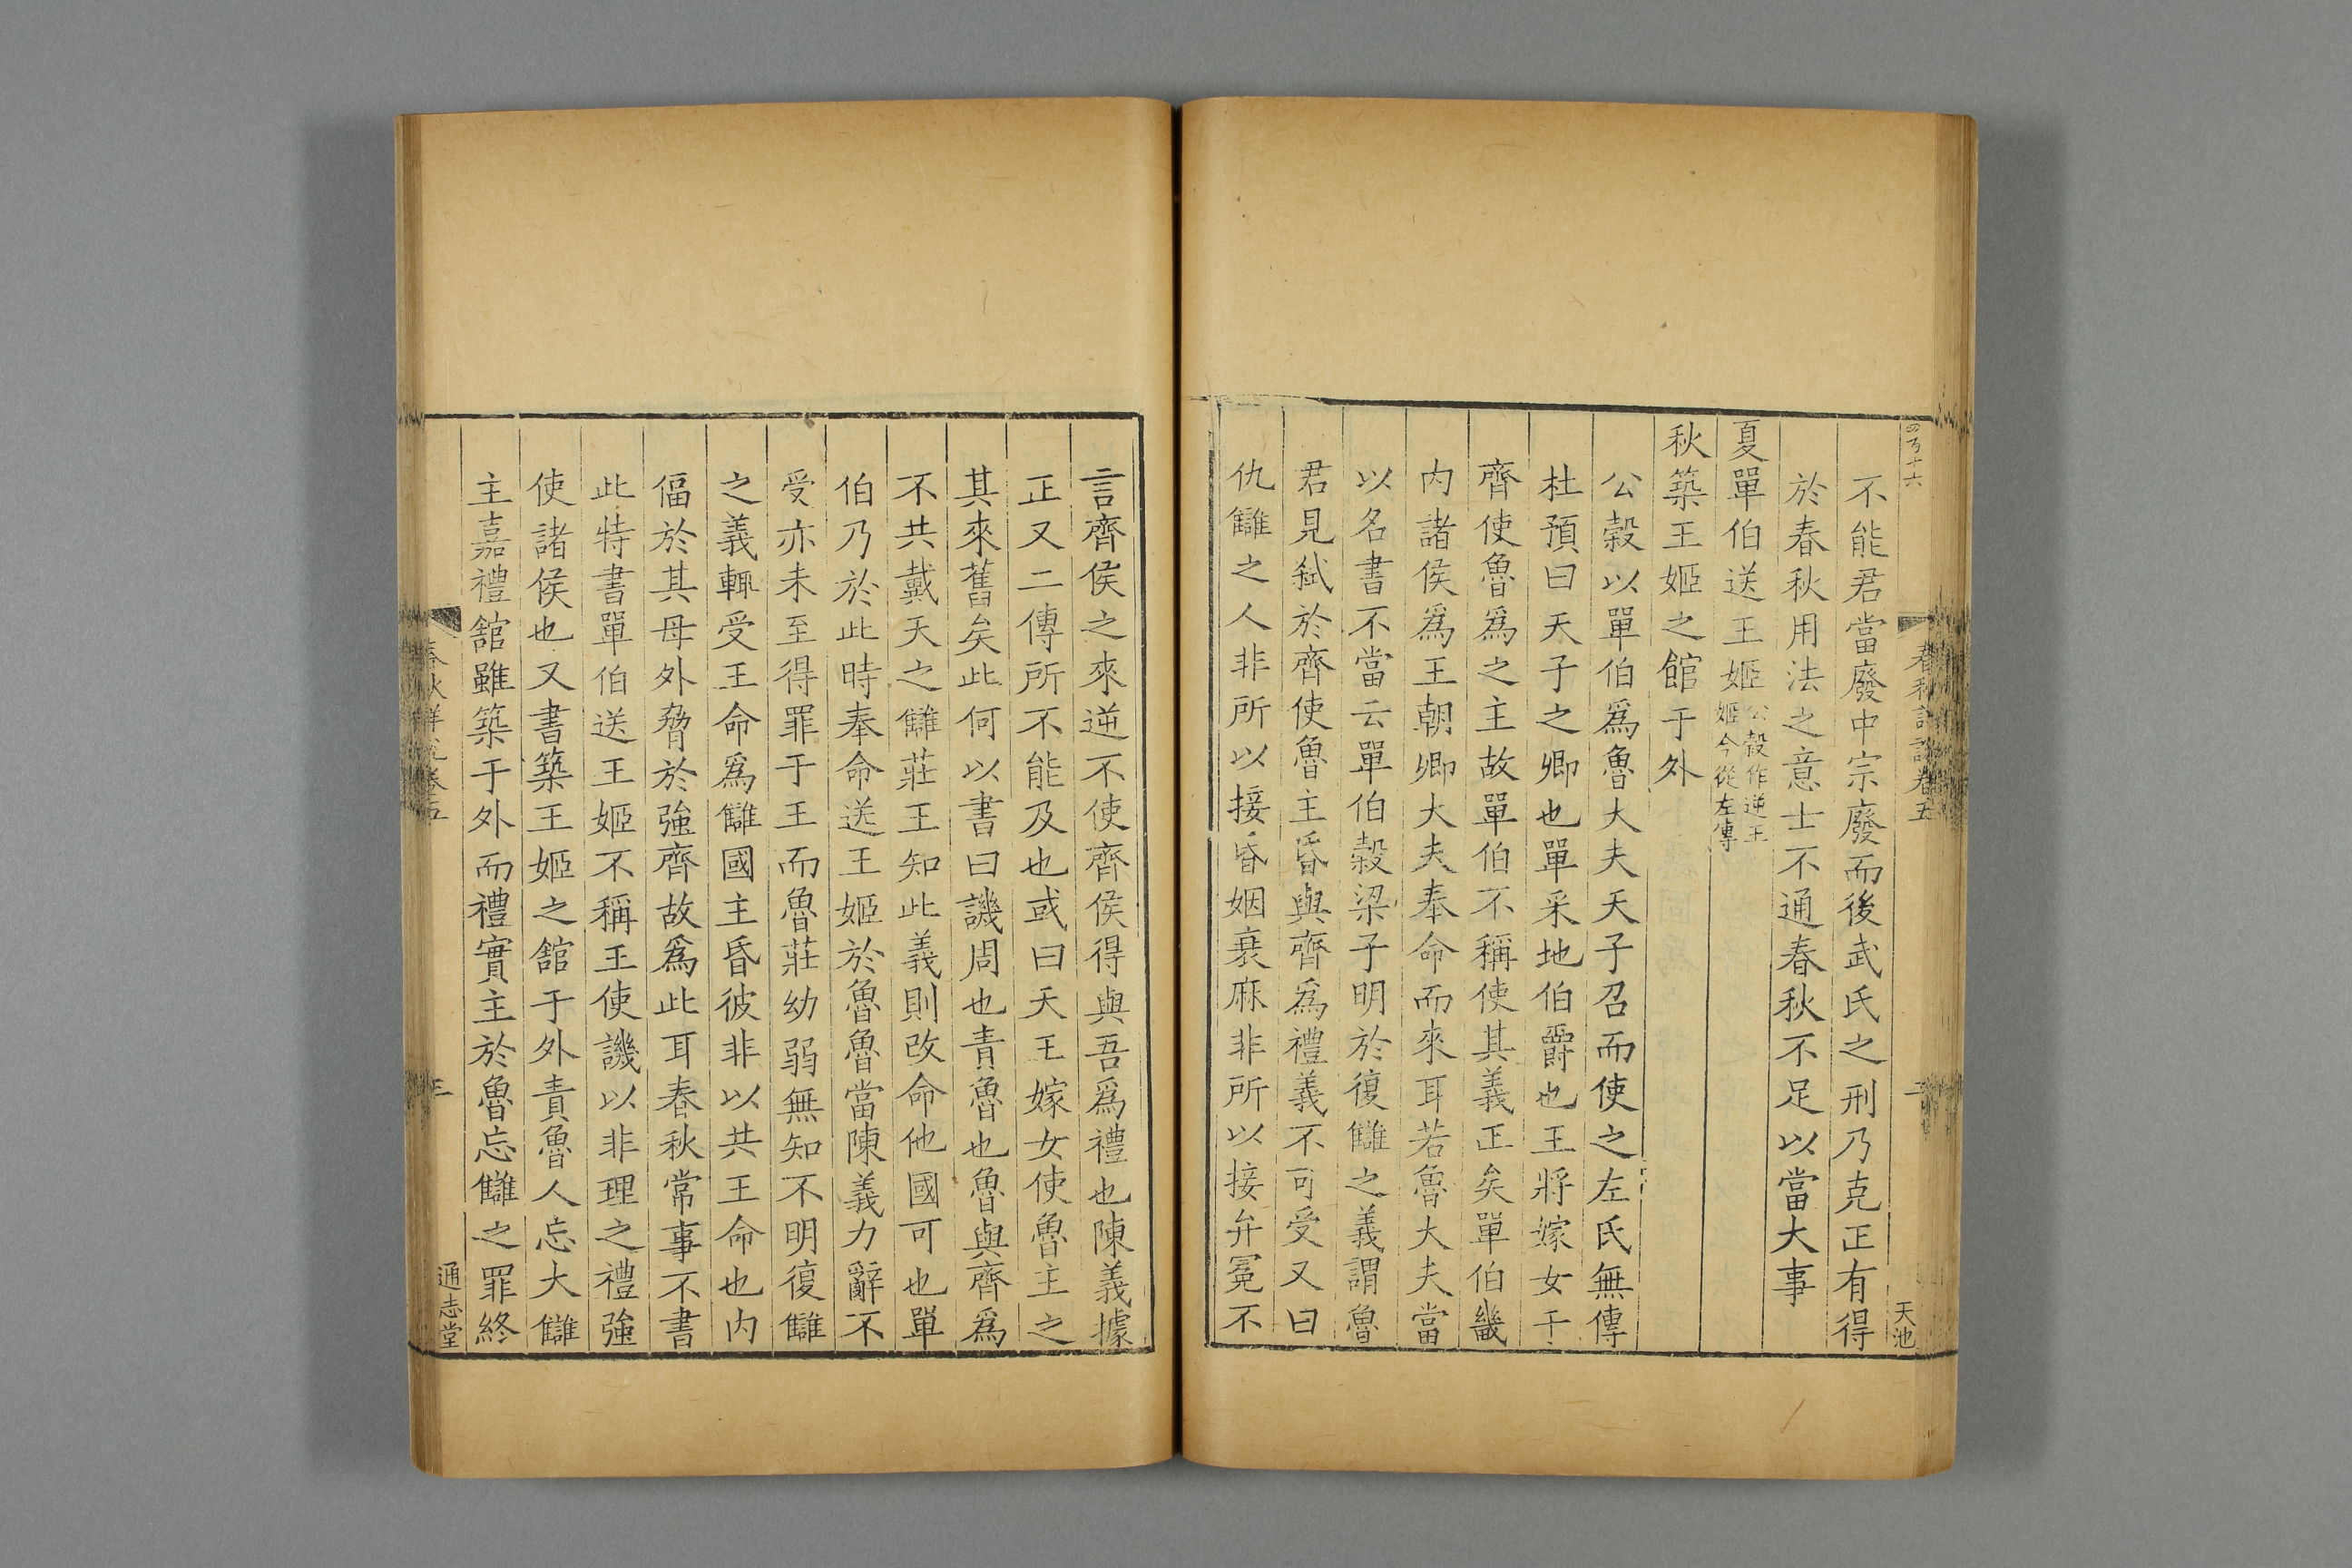 春秋詳說卷五
二
天池
不能君當廢中宗廢而後武氏之刑乃克正有得
於春秋用法之意士不通春秋不足以當大事
夏單伯送王姬公穀作逆王姬今從左傳
秋築王姬之館于外
公穀以單伯爲魯大夫天子召而使之左氏無傳
杜預曰天子之卿也單采地伯爵也王將嫁女于
齊使魯爲之主故單伯不稱使其義正矣單伯畿
內諸侯爲王朝卿大夫奉命而來耳若魯大夫當
以名書不當云單伯穀梁子明於復讎之義謂魯
君見弒於齊使魯主昏與齊爲禮義不可受又曰
仇讎之人非所以接昏姻衰麻非所以接弁冕不
言齊侯之來逆不使齊侯得與吾爲禮也陳義據
正又二傳所不能及也或曰天王嫁女使魯主之
其來舊矣此何以書曰譏周也責魯也魯與齊爲
不共戴天之讎莊王知此義則改命他國可也單
伯乃於此時奉命送王姬於魯魯當陳義力辭不
受亦未至得罪于王而魯莊幼弱無知不明復讎
之義輒受王命爲讎國主昏彼非以共王命也内
偪於其母外脅於強齊故爲此耳春秋常事不書
此特書單伯送王姬不稱王使譏以非理之禮強
使諸侯也又書築王姬之舘于外責魯人忘大讎
主嘉禮舘雖築于外而禮實主於魯忘讎之罪終
春秋詳說卷五
通志堂